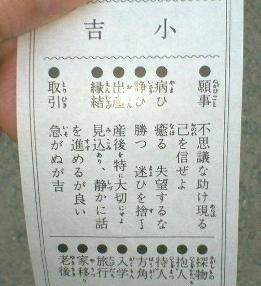 小吉
●願事 不思議な助け現る
己を信ぜよ
●病ひ 癒る 失望するな
●諍ひ 勝つ 迷ひを捨てよ
●出産 産後を特に大切にせよ
●縁結 見込あり、静かに話
を進めるが良い
●取引 急がぬが吉
●探物
●抱人
●待人
●方角
●入学
●旅行
●家移り
●老後